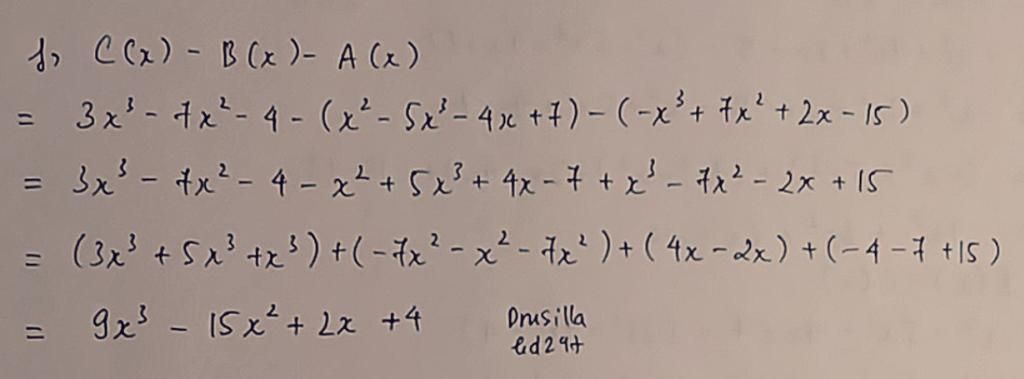 f, C(x) - B(x) - A(x)
= 3x³ - 7x² - 4 - (x² - 5x³ - 4x + 7) - (-x³ + 7x² + 2x - 15)
= 3x³ - 7x² - 4 - x² + 5x³ + 4x - 7 + x³ - 7x² - 2x + 15
= (3x³ + 5x³ + x³) + (-7x² - x² - 7x²) + (4x - 2x) + (-4 - 7 + 15)
= 9x³ - 15x² + 2x + 4
Drusilla